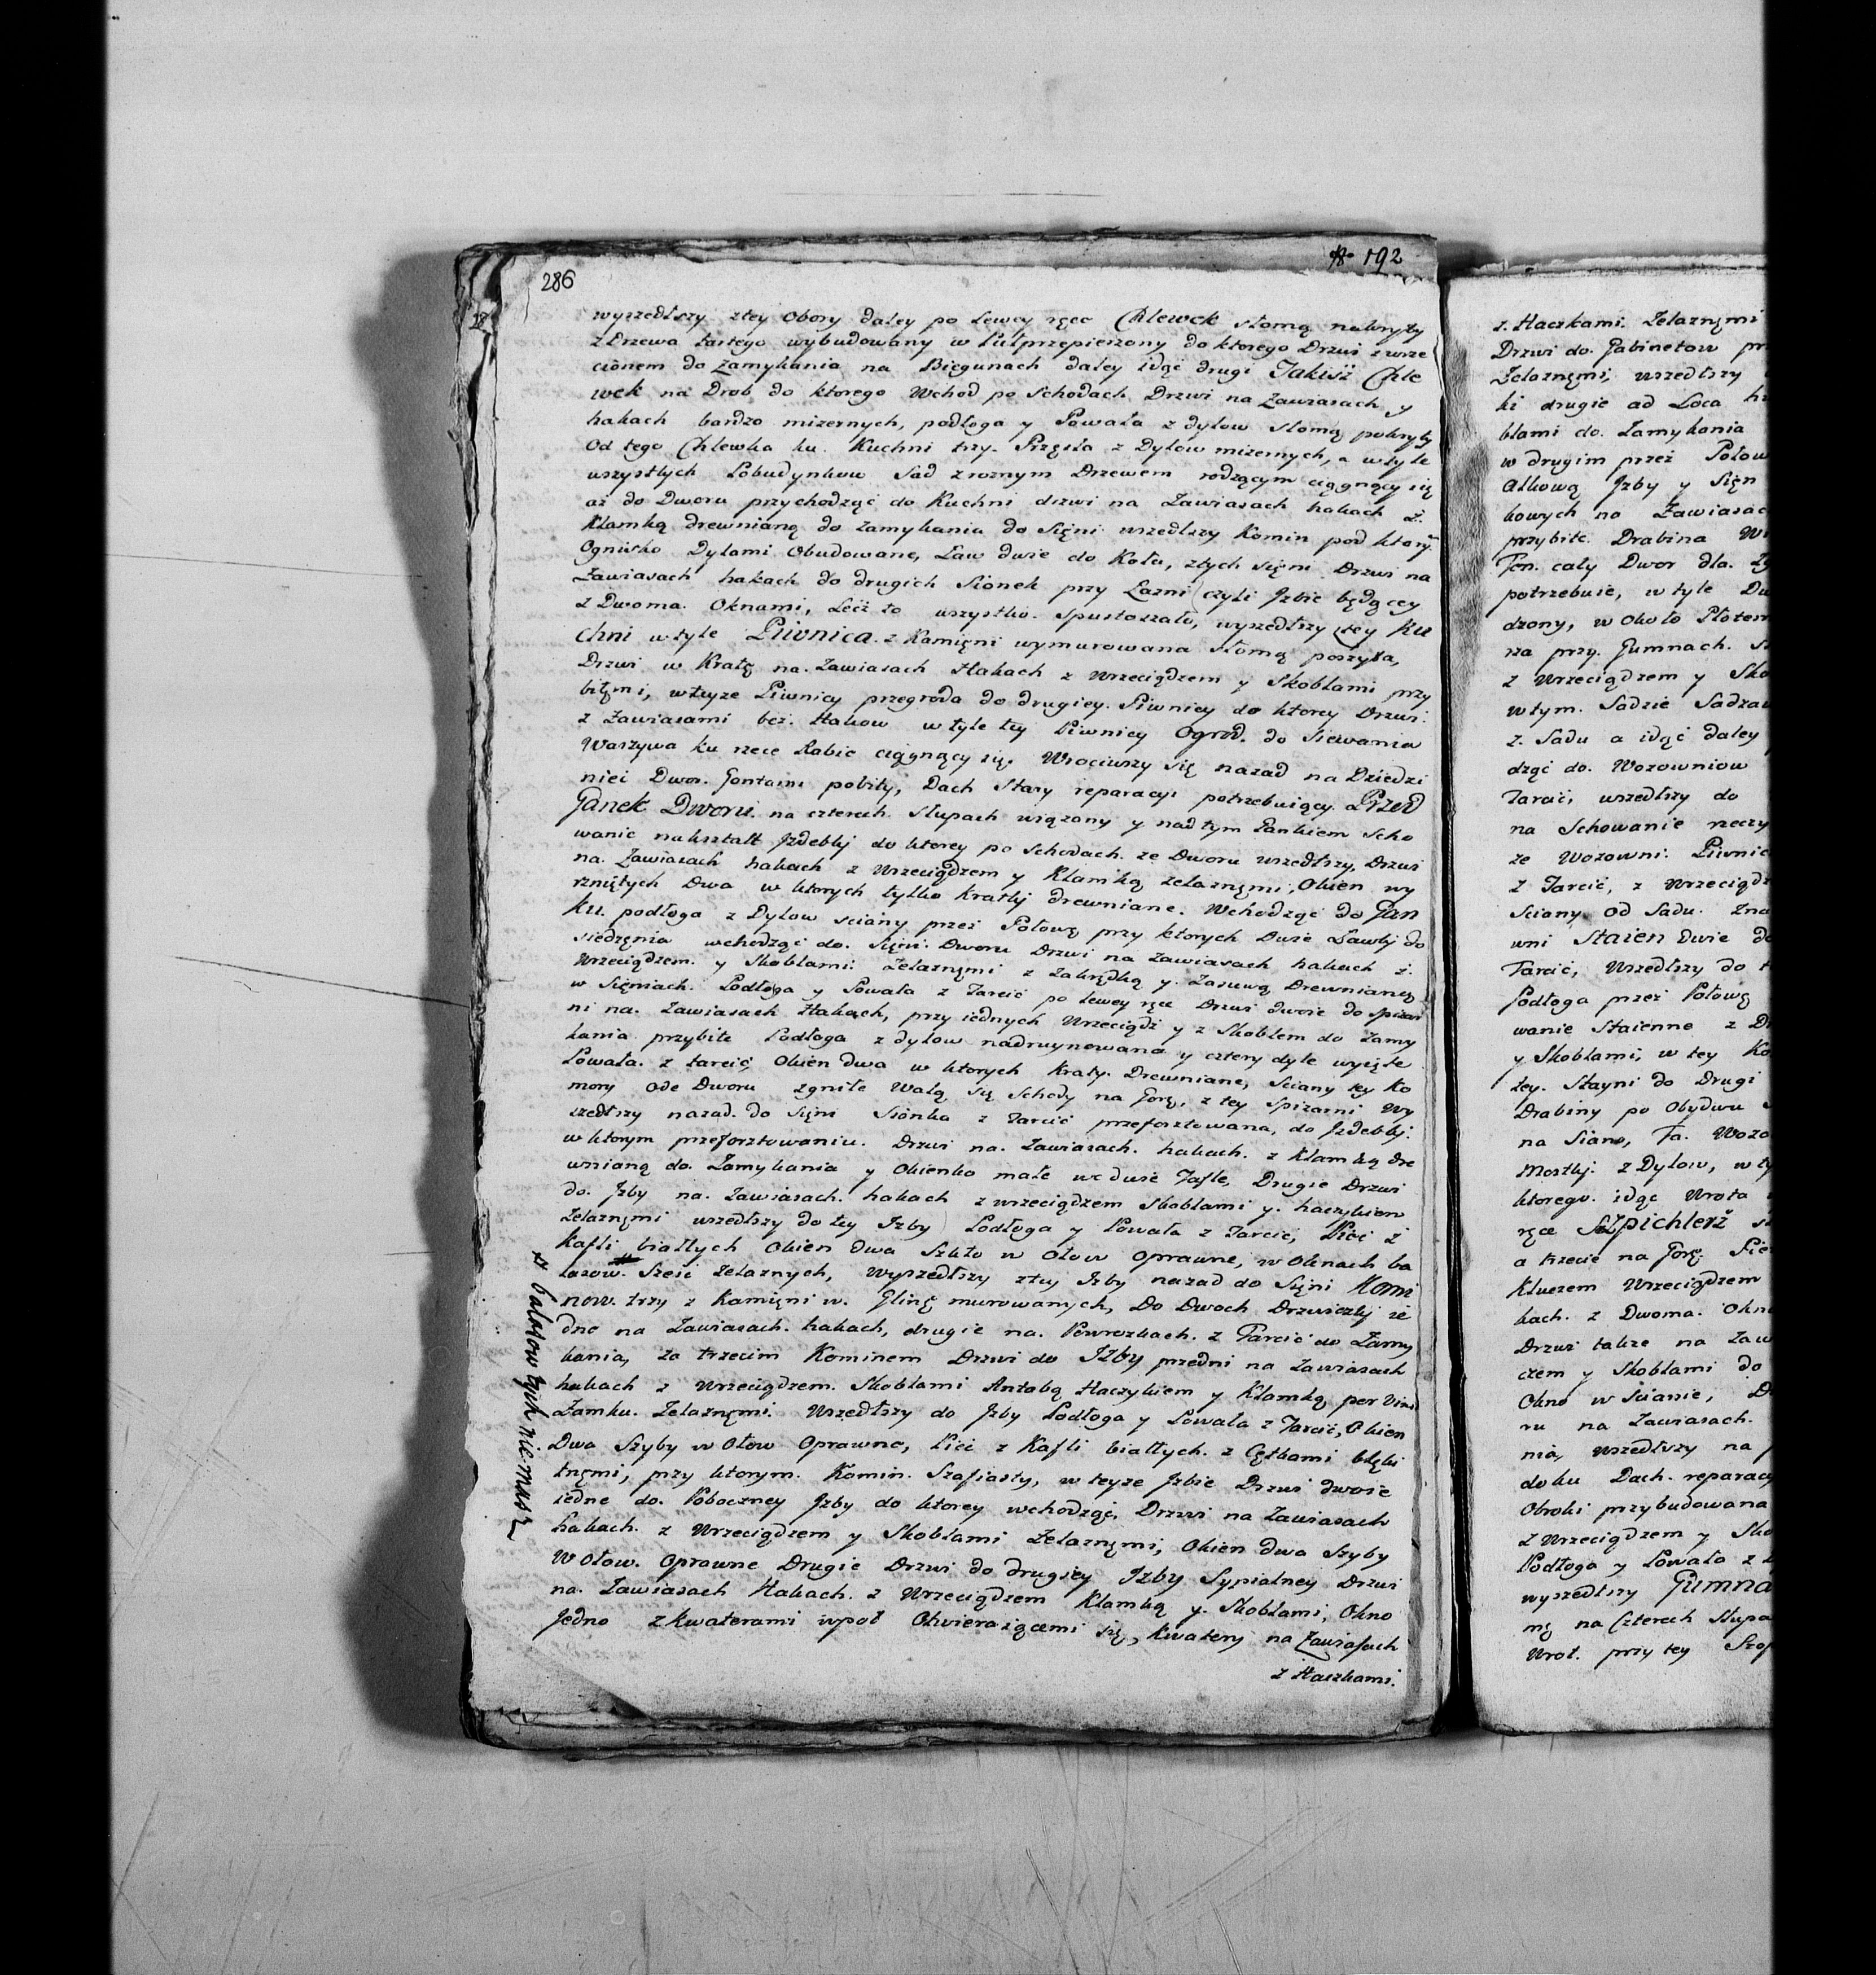 286
192
wyszedłszy ztey Obory daley po Lewey ręce Chlewek słomą nakryty
z Drzewa tartego wybudowany w Pułprzepierzony do ktorego Drzwi z wrze
cionem do zamykania na Biegunach daley idąc drugi Takisz Chle
wek na Drob do ktorego Wchod po Schodach Drzwi na Zawiasach y
hakach bardzo mizernych, podłoga y Powała z dylow słomą pokryty
Od tego Chlewka ku Kuchni trzy Przęsła z Dylow mizernych, a wtyle
wszystkych Pobudynkow Sad z roznym Drzewem rodzącym ciągnący się
aż do Dworu przychodząć do Kuchni drzwi na Zawiasach hakach z.
Klamką drewnianą do zamykania do Sięni wszedłszy Komin pod ktorÿ
Ognisko Dylami Obudowane, Ław dwie do Koła, ztych sięni Drzwi na
Zawiasach hakach do drugich Sionek przy Łazni czyli Jzbie będącey
z Dwoma. Oknami, Lećż to wszystko. Spustoszało, wyszedłszy ztey Ku
chni wtyle Piwnica. z Kamięni wymurowana słomą poszyta,
Drzwi w Kratę na. Zawiasach Hakach z Wrzeciądzem y Skoblami przy
bitęmi, wteyze Piwnicy przegroda do drugiey. Piwnicy do ktorey Drzwi.
z Zawiasami bez. Hakow wtyle tey Piwnicy Ogrod. do Siewania
Warzywa ku rzece Rabie ciągnący się. Wrociwszy się nazad na Dziedzi
niec Dwor. Gontami pobity, Dach Stary reparacyi potrzebuiący. Przed
Ganek Dworu. na czterech Słupach wiązony y nad tym Gankiem Scho
wanie nakształt Jzdebkj do ktorey po Schodach. ze Dworu wszedłszy, Drzwi
na. Zawiasach hakach z Wrzeciądzem y Klamką zelaznęmi, Okien wy
rzniętych Dwa w ktorych tylko Kratkj drewniane. Wchodząć do Gan
ku. podłoga z Dylow sciany przez Połowę przy ktorych Dwie Ławkj do
siedzęnia wchodząć do. Sięni. Dworu Drzwi na Zawiasach hakach z.
Wrzeciądzem. y Skoblami Zelaznęmi z Zakrętką y. Zasuwą Drewnianą
w Sięniach. Podłoga y Powała z Tarcić po lewey ręce Drzwi dwoie do Spizar
ni na. Zawiasach Hakach, przy iednych Wrzeciądz y z Skoblem do Zamy
kania przybite Podłoga z dylow nadruynowana y cztery dyle wyięte
Powała. z tarcić, Okien dwa w ktorych Kraty. Drewniane, Sciany tey Ko
mory Ode Dworu zgniłe Walą się Schody na Gorę, z tey Spizarni Wy
szedłszy nazad. do Sięni Sionka z Tarcić przeforsztowana, do Jzdebkj.
w ktorym przeforsztowaniu. Drzwi na. Zawiasach. hakach. z Klamką dre
wnianą do. Zamykania y Okienko małe we dwie Tafle, Drugie Drzwi
do. Jzby na. Zawiasach. hakach z wrzeciądzem Skoblami y. haczykiem
Zelaznęmi wszedłszy do tey Jzby Podłoga y Powała z Tarcić, Piec z
Kafli białłych Okien dwa Szkło w Ołow Oprawne, w Oknach ba
lasow. Sześć zelaznych, wyszedłszy ztey Jzby nazad do Sięni Komi
now. trzy z Kamięni w. Glinę murowanych, Do Dwoch Drzwiczkj ie
dne na Zawiasach. hakach, drugie na. Powrozkach. z Tarcić do Zamy
kania, za trzecim Kominem Drzwi do Jzby przedni na Zawiasach
hakach z Wrzeciądzem. Skoblami Antabą Haczykiem y Klamką per vim
Zamku. Zelaznęmi. Wszedłszy do Jzby Podłoga y Powała z Tarcić, Okien
Dwa Szyby w Ołow Oprawne, Piec z Kafli białłych. z Cętkami błęki
tnęmi, przy ktorym. Komin. Szafiasty, w teyze Jzbie Drzwi dwoie
iedne do. Poboczney Jzby do ktorey wchodząć, Drzwi na Zawiasach
hakach. z Wrzeciądzem y Skoblami Zelaznęmi, Okien dwa Szyby
W Ołow. Oprawne Drugie Drzwi do drugiey Jzby Sypialney Drzwi
na. Zawiasach Hakach. z Wrzeciądzem Klamką y. Skoblami, Okno
Jedno z kwaterami wpoł Otwieraiącemi się, kwatery na Zawiasach
z Haczkami.
balasow tych nie masz
z. Haczkami. Zelaznęmi
Drzwi do. Gabinetow
Zelaznęmi, wszedłszy
ki drugie ad Loca
blami do. Zamykania
w drugim przez Połow
Alkową Jzby y Sięn
kowych na Zawiasac
przybite. Drabina
Ten. cały Dwor dla.
potrzebuie, w tyle
dzony, w Około Płotem
rza przy. Gumnach.
z Wrzeciądzem y Sko
wtym. Sadzie Sadzaw
z. Sadu a idąć daley
dząć do. Wozowniow
Tarcić, wszedłszy do
na Schowanie rzeczy
ze Wozowni. Piwnic
z Tarcić, z Wrzeciądz
Sciany Od Sadu.
wni Staien dwie
Tarcić, Wszedłszy do
Podłoga przez Połowę
wanie Staienne z
y Skoblami, w tey
tey. Stayni do Drugi
Drabiny po Obydwu
na Siano, Ta. Wozo
Mostkj. z Dylow,
ktorego. idąc Wrota
ręce Szpichlerz
a trzecie na Gorę.
Kluczem Wrzeciądzem
kach. z Dwoma. Okna
Drzwi takze na Zaw
czem y Skoblami do
Okno w Scianie,
ru na Zawiasach.
nia, wszedłszy na
doku Dach. reparacy
Obroki przybudowana
z Wrzeciądzem y Sko
Podłoga y Powała z
wyszedłszy Gumna
mę na Czterech Słupa
Wrot. przy tey Szop